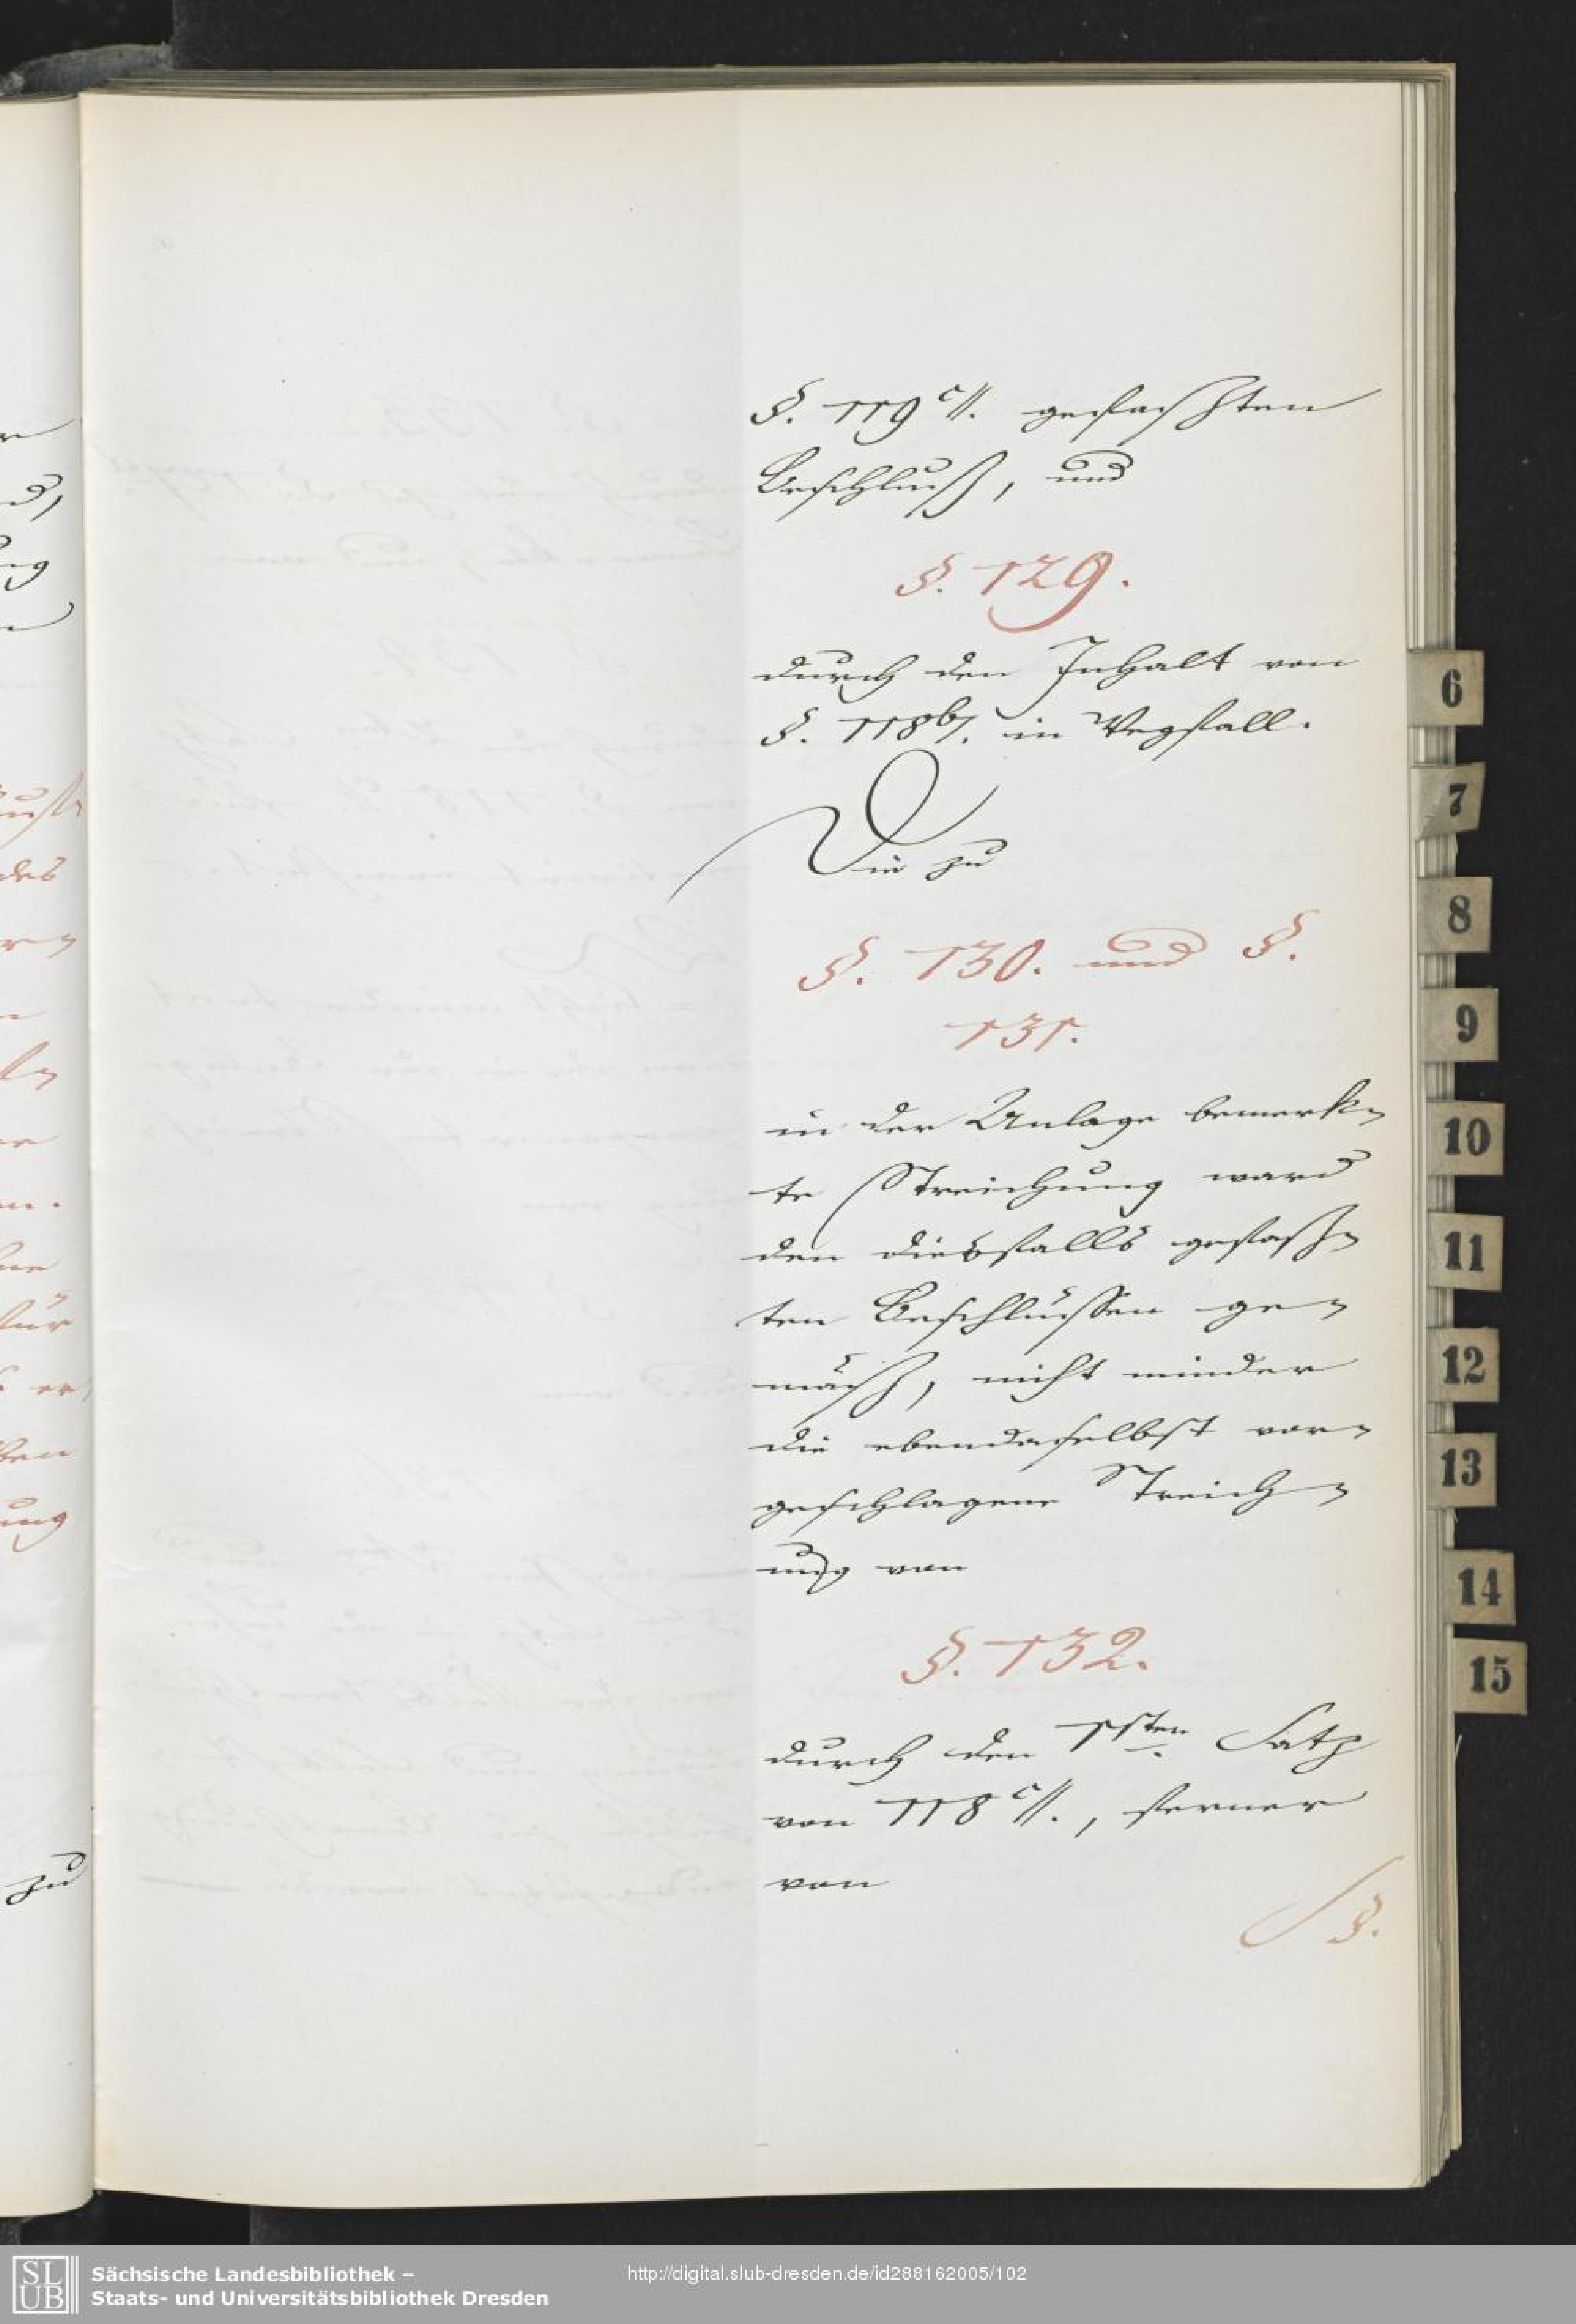 §. 119 c//. gefaßten
Beschluß, und
§. 129.
durch den Inhalt von
§. 118 b/. in Wegfall.
Die zu
§. 130. und §.
131.
in der Anlage bemerk-
te Streichung ward
den diesfalls gefaß-
ten Beschlüssen ge-
mäß, nicht minder
die ebendaselbst vor-
geschlagene Streich-
ung von
§. 132.
durch den 1sten Satz
von 118 c//., ferner
von
§.
zu
6
7
8
9
10
11
12
13
14
15
SLUB
Sächsische Landesbibliothek –
Staats- und Universitätsbibliothek Dresden
http://digital.slub-dresden.de/id288162005/102